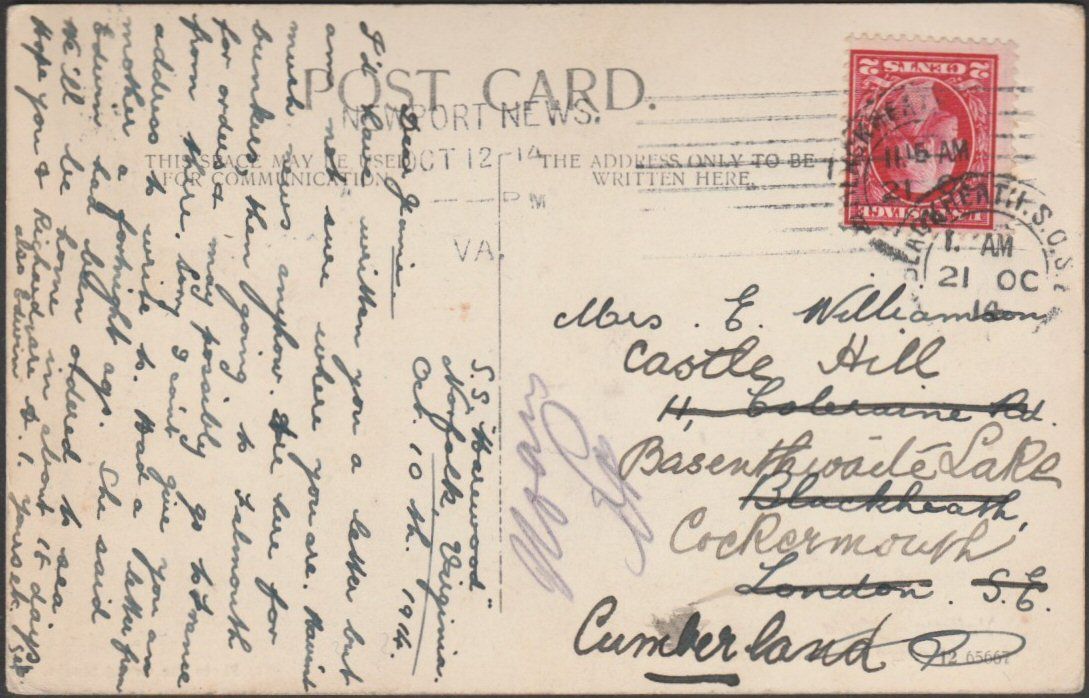 POST CARD.
THIS SPACE MAY BE USED
FOR COMMUNICATION.
THE ADDRESS ONLY TO BE
WRITTEN HERE.
NEWPORT NEWS.
OCT 12-14
PM
VA.
2 CENTS 2
POSTAGE
11.15 AM
BLACKHEATH S.O. S.E
1. AM
21 OC
14
S.S. "Harewood"
Norfolk Virginia.
Oct. 10th. 1914.
Dear Jeannie.
I'll have written you a letter but
am not sure where you are. Havint
much news anyhow. Are here for
bunkers, then going to Falmouth
for orders. may possibly go to France
from there, being I cant give you an
address to write to. Had a letter from
mother a fortnight ago. She said
Edwin had been ordered to sea
We'll be home in about 18 days
Hope you & Richard are
also Edwin & I. Yours ek.
Mrs. E. Williamson
Castle Hill
11, Coleraine Rd.
Bassenthwaite Lake
Blackheath,
Cockermouth
London. S.E.
Cumberland
12 65667